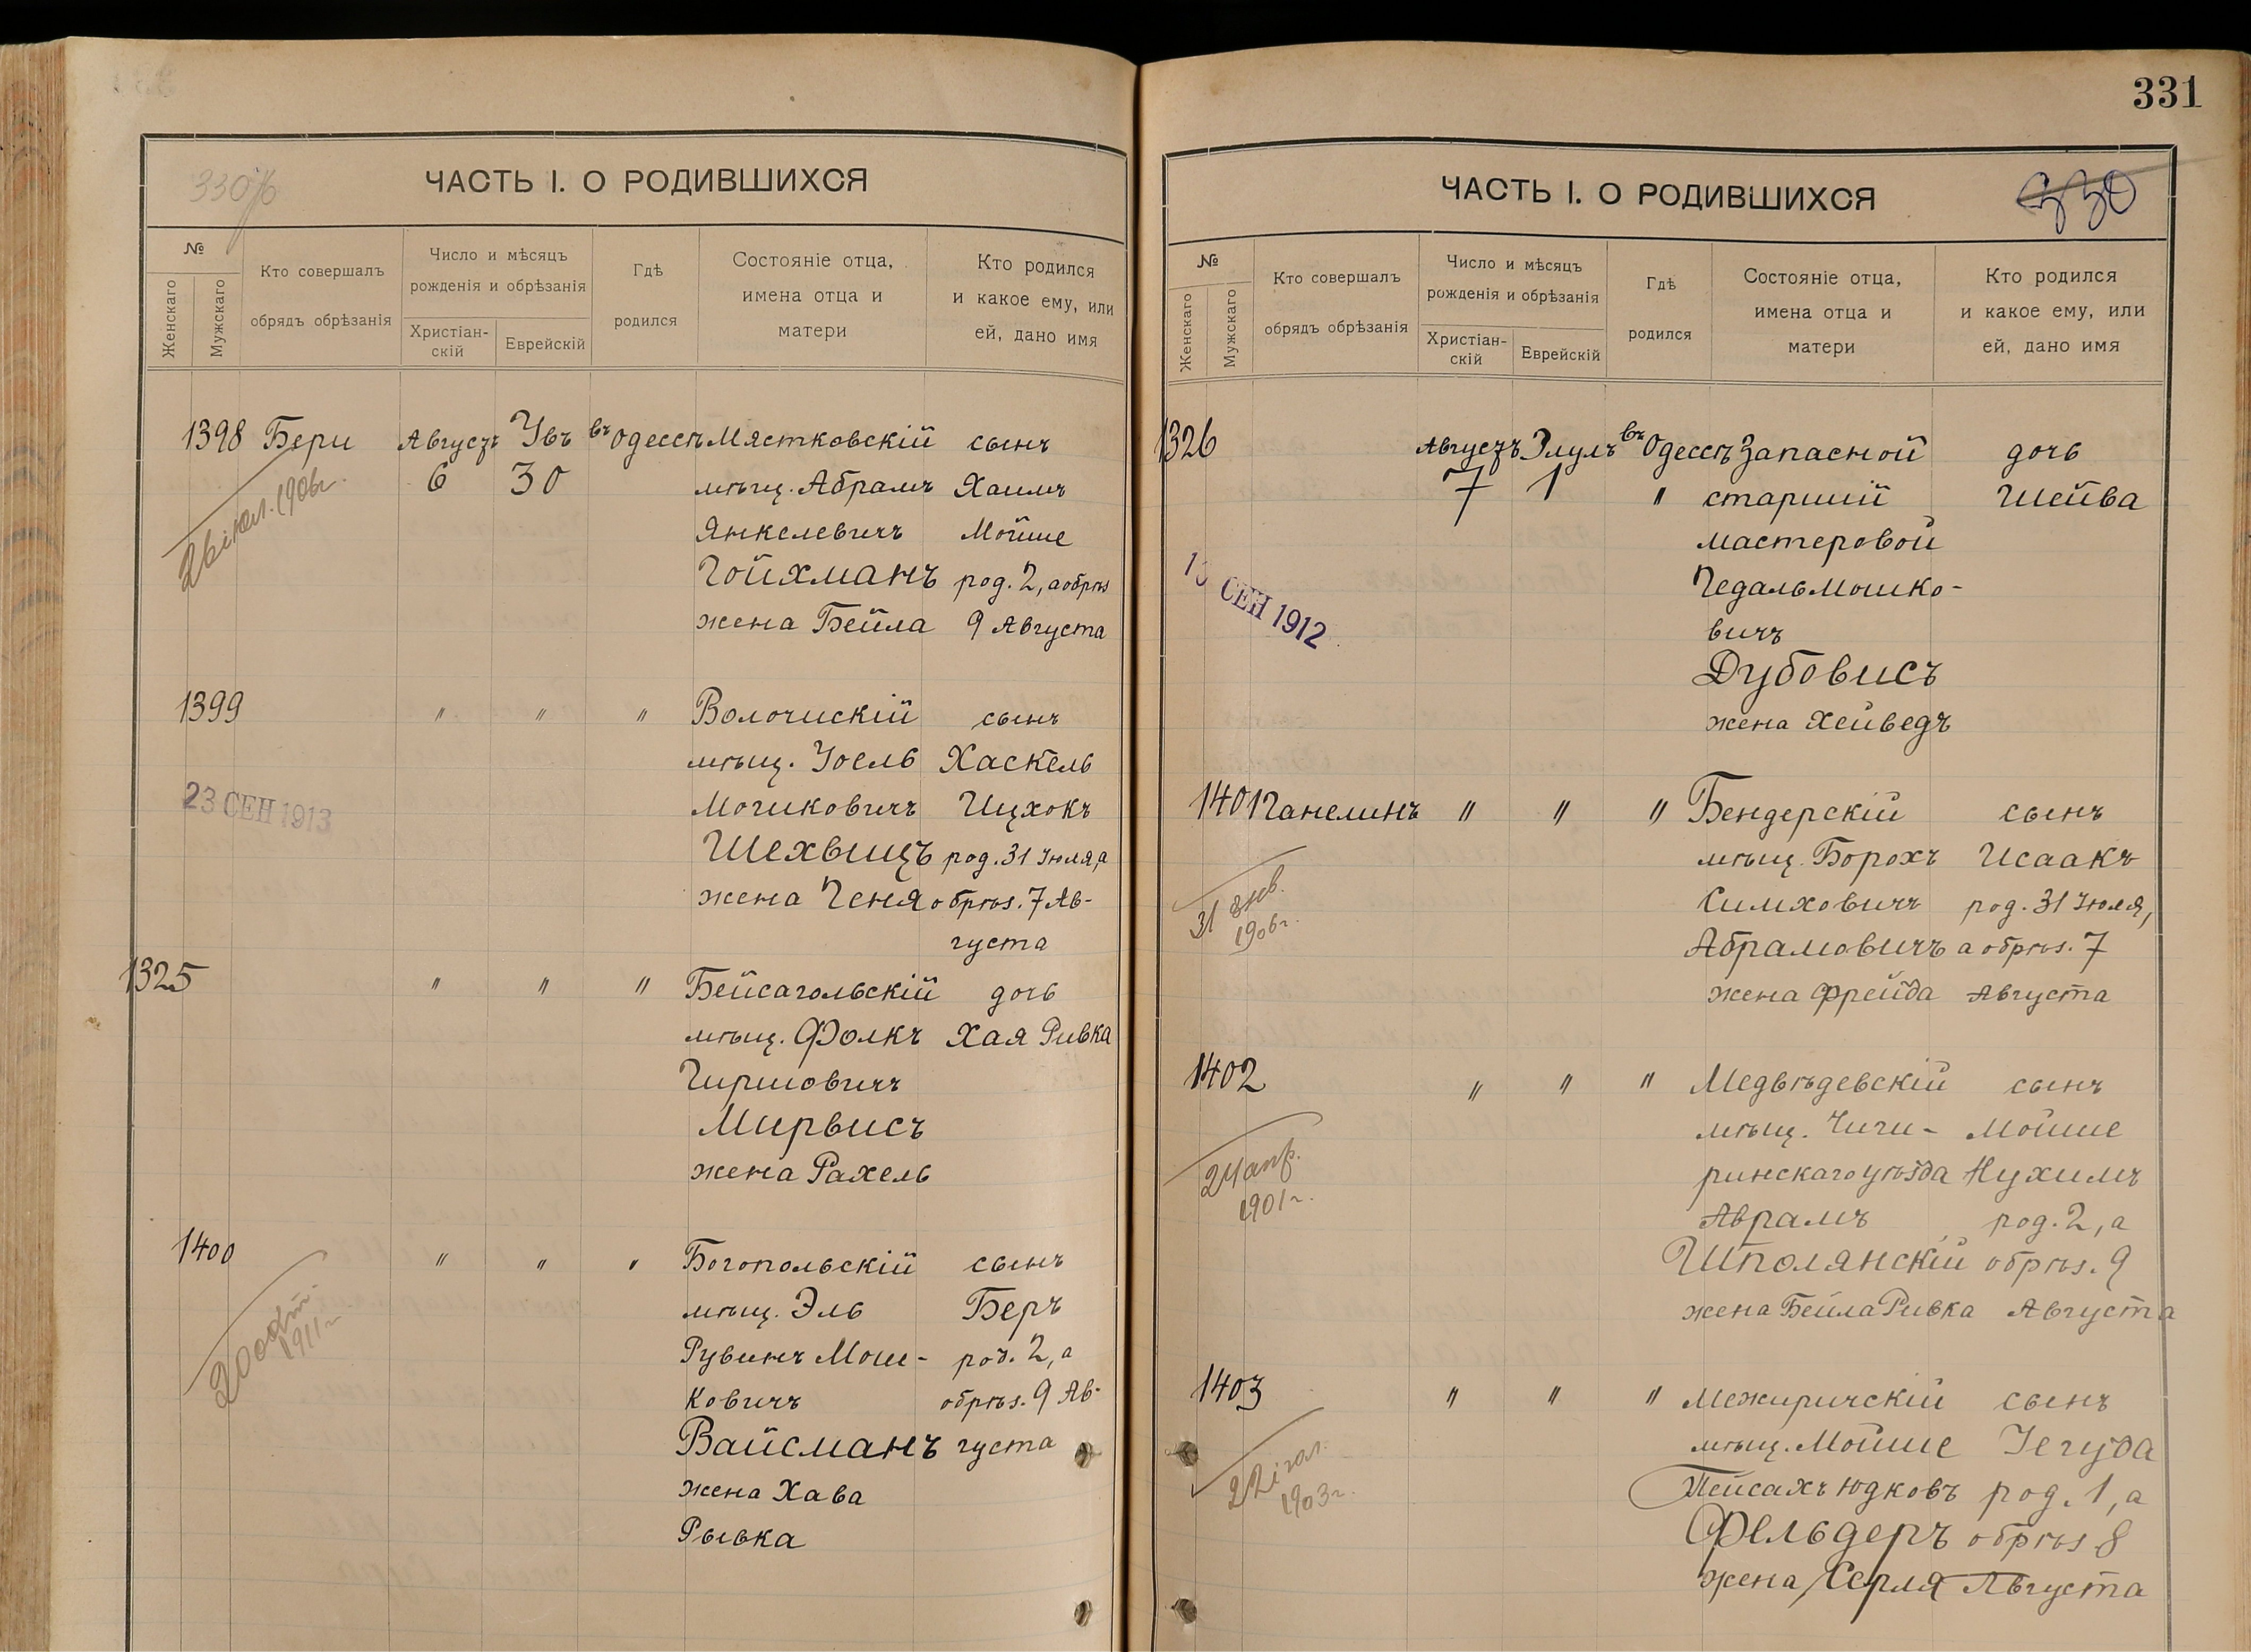 331
330
ЧАСТЬ I. О РОДИВШИХСЯ
№
Женскаго
Мужскаго
Кто совершалъ
обрядъ обрѣзанія
Число и мѣсяцъ
рожденія и обрѣзанія
Христіан-
скій
Еврейскій
Гдѣ
родился
Состояніе отца,
имена отца и
матери
Кто родился
и какое ему, или
ей, дано имя
1398 Бери Августъ Увъ въ Одессѣ Мястковскій сынъ
6 30 мѣщ. Абрамъ Хаимъ
26 іюл. 1906г.
Янкелевичъ Мойше
Гойхманъ род. 2, а обрѣз
жена Бейла 9 Августа
1399 " " " Волочискій сынъ
мѣщ. Іоель Хаскель
23 СЕН 1913
Мошковичъ Ицхокъ
Шехвицъ род. 31 Іюля, а
жена Геня обрѣз. 7 Ав-
густа
1325 " " " Бейсагольскій дочь
мѣщ. Фолкъ Хая Ривка
Гиршовичъ
Мирвисъ
жена Рахель
1400 " " " Богопольскій сынъ
мѣщ. Эль Беръ
20 окт 1911г
Рувинъ Мош- род. 2, а
ковичъ обрѣз. 9 Ав-
Вайсманъ густа
жена Хава
Рывка
ЧАСТЬ I. О РОДИВШИХСЯ
330
№
Женскаго
Мужскаго
Кто совершалъ
обрядъ обрѣзанія
Число и мѣсяцъ
рожденія и обрѣзанія
Христіан-
скій
Еврейскій
Гдѣ
родился
Состояніе отца,
имена отца и
матери
Кто родился
и какое ему, или
ей, дано имя
1326 Августъ Элулъ въ Одессѣ Запасной дочь
7 1 " старшій Шейва
мастеровой
СЕН 1912
Гедаль Мошко-
вичъ
Дубовисъ
жена Хейведъ
1401 Ганелинъ " " " Бендерскій сынъ
мѣщ. Борохъ Исаакъ
31 янв. 1906г.
Симховичъ род. 31 Іюля,
Абрамовичъ а обрѣз. 7
жена Фрейда Августа
1402 " " " Медвѣдевскій сынъ
мѣщ. Чиги- Мойше
24 апр. 1901г.
ринскаго уѣзда Нухимъ
Аврамъ род. 2, а
Шполянскій обрѣз. 9
жена Бейла Ривка Августа
1403 " " " Межиричскій сынъ
мѣщ. Мойше Іегуда
22 іюл. 1903г.
Пейсахъ Юдковъ род. 1, а
Фельдеръ обрѣз. 8
жена Серля Августа